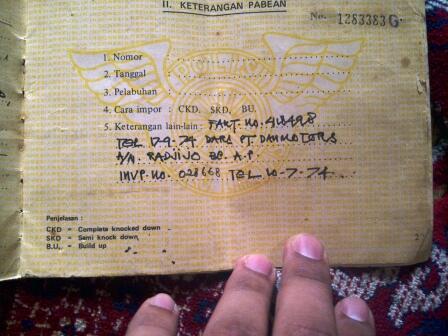 II. KETERANGAN PABEAN
No. 1283383 G
1. Nomor :
2. Tanggal :
3. Pelabuhan :
4. Cara impor : CKD, SKD, BU.
5. Keterangan lain-lain : FAKT. NO. 418498
TGL 17-9-74 DARI PT. DANMOTORS
A/N. RADIJJO A.P.
INVP. NO. 028668 TGL 10-7-74
Penjelasan :
CKD = Complete knocked down
SKD = Semi knock down
B.U. = Build up
2